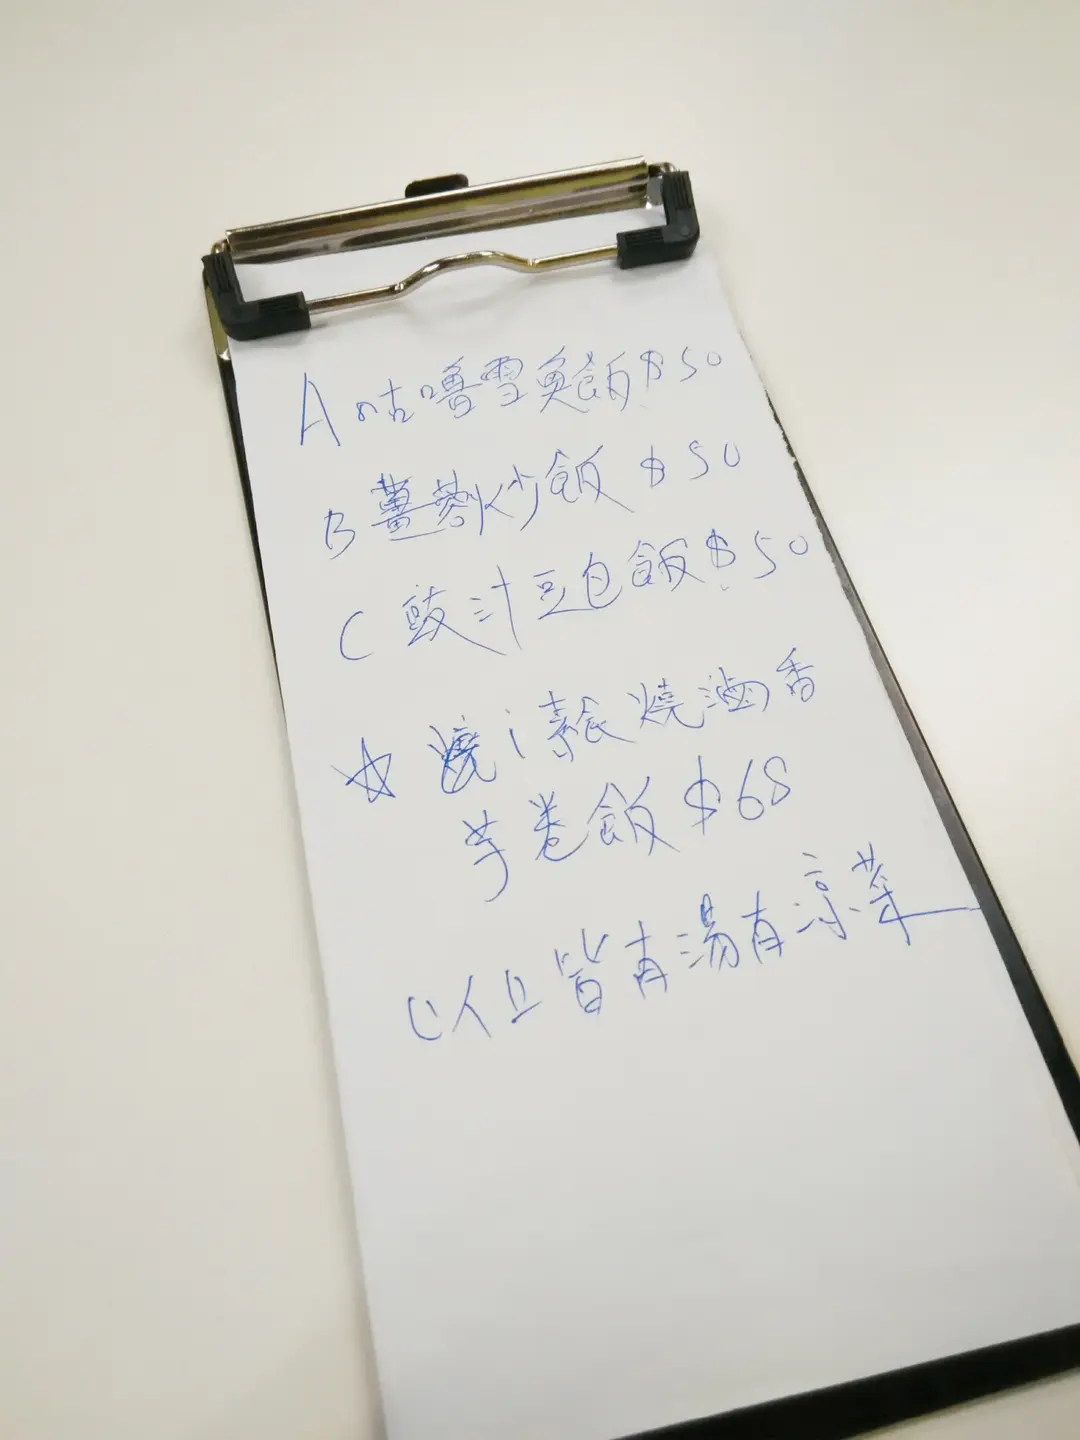 A 咕嚕雪魚飯 $50
B 薑蓉炒飯 $50
C 豉汁豆包飯 $50
☆ 素食燒滷香
芋卷飯 $68
以上皆有湯有涼菜